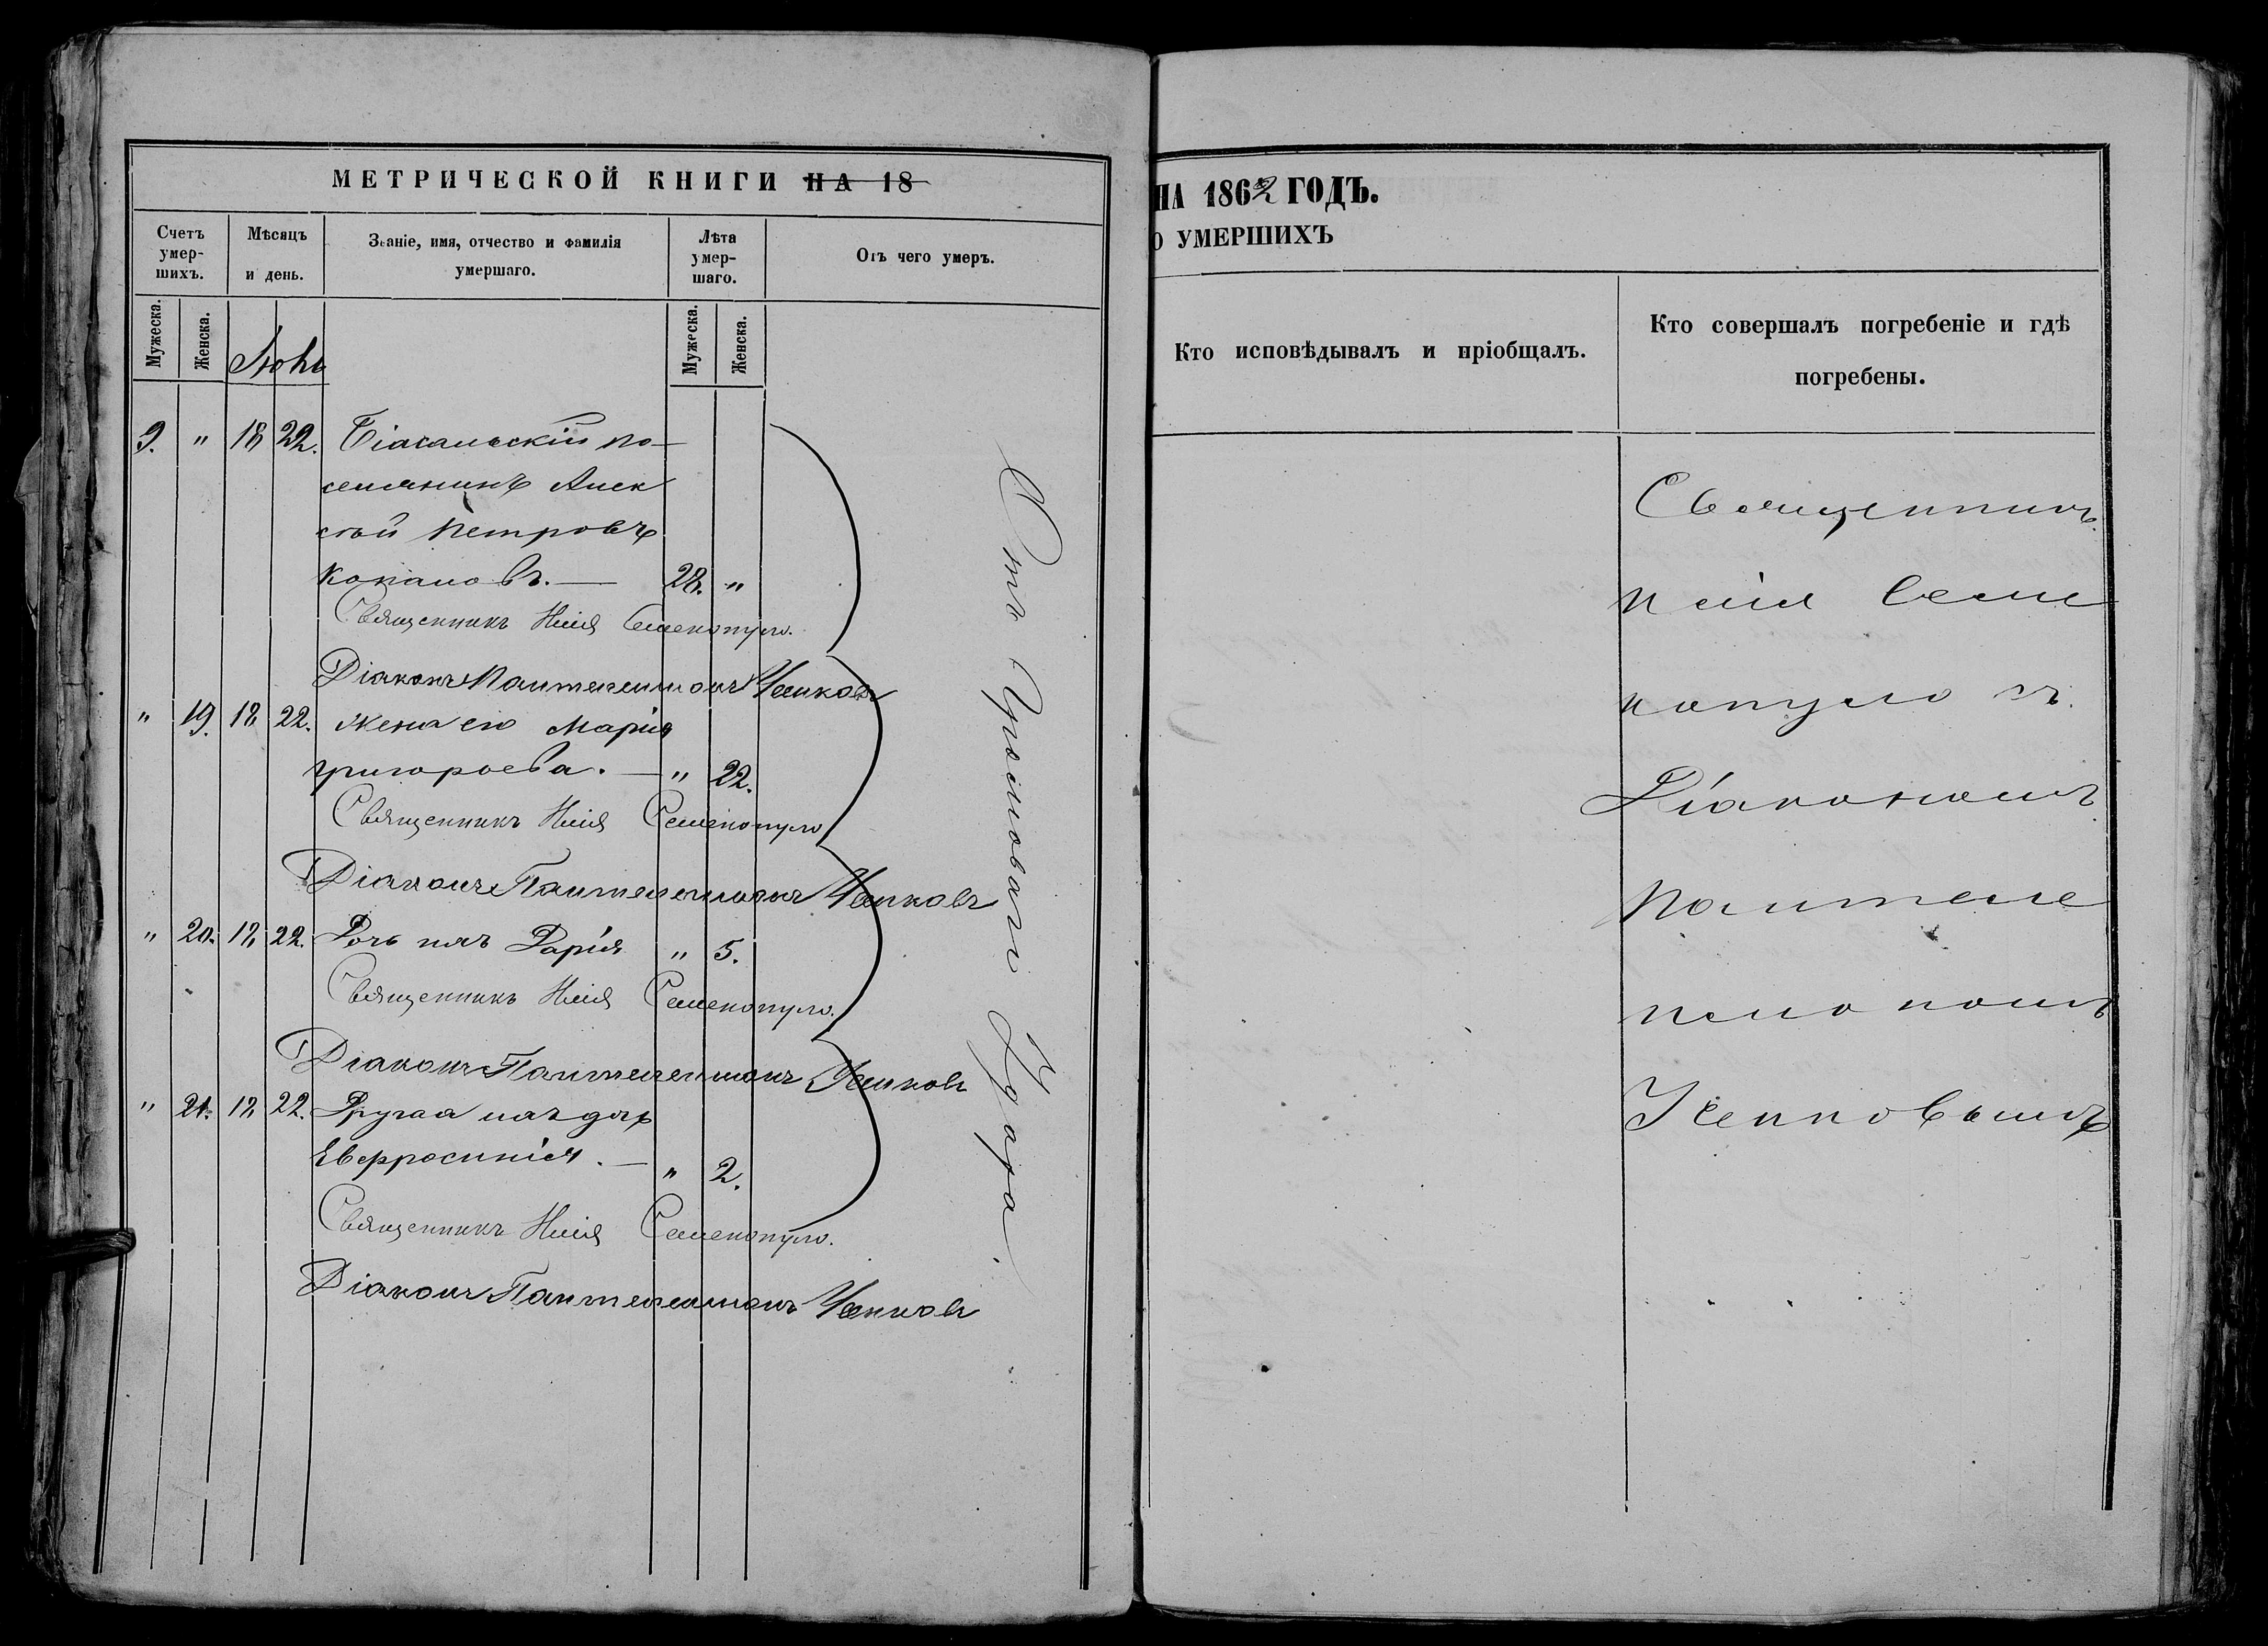 МЕТРИЧЕСКОЙ КНИГИ НА 18
Счетъ умер-шихъ.
Мѣсяцъ и день.
Званіе, имя, отчество и фамилія умершаго.
Лѣта умер-шаго.
Отъ чего умеръ.
Мужеска.
Женска.
Мужеска.
Женска.
9. " 18 22. Біасальскій по-
селянинъ Алек
сѣй Петровъ
28. "
Священникъ Илія Семенопуло.
Діаконъ Пантелеимонъ Чепковъ
" 19. 18 22. Жена его Марія
Григорьева. — " 22.
Священникъ Илія Семенопуло
Діаконъ Пантелеимонъ Чепковъ
" 20. 18 22. Дочь ихъ Дарія " 5.
Священникъ Илія Семенопуло.
Діаконъ Пантелеимонъ Чепковъ
" 21. 18 22. Другая ихъ дочь
Евфросинія. — " 2.
Священникъ Илія Семенопуло.
Діаконъ Пантелеимонъ Чепковъ
Отъ Громоваго Удара.
НА 1862 ГОДЪ.
О УМЕРШИХЪ
Кто исповѣдывалъ и пріобщалъ.
Кто совершалъ погребеніе и гдѣ погребены.
Священникъ
Илія Семе
нопуло съ
Діакономъ
Пантеле
имономъ
Чепковымъ